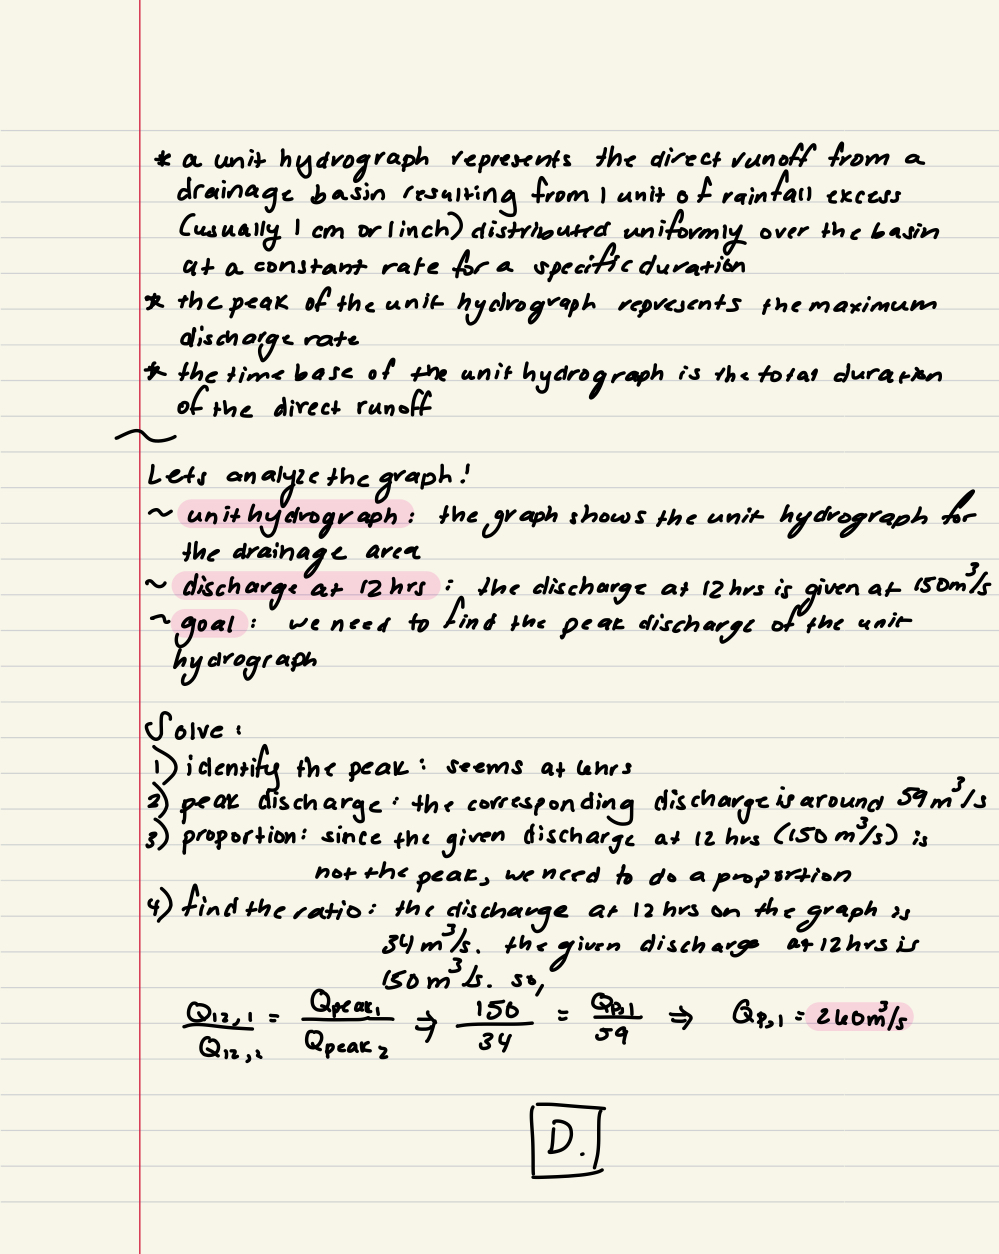 * a unit hydrograph represents the direct runoff from a
drainage basin resulting from 1 unit of rainfall excess
(usually 1 cm or 1 inch) distributed uniformly over the basin
at a constant rate for a specific duration
* the peak of the unit hydrograph represents the maximum
discharge rate
* the time base of the unit hydrograph is the total duration
of the direct runoff
~
Lets analyze the graph!
~ unit hydrograph: the graph shows the unit hydrograph for
the drainage area
~ discharge at 12 hrs: the discharge at 12 hrs is given at 150m³/s
~ goal: we need to find the peak discharge of the unit
hydrograph
Solve:
1) identify the peak: seems at 6hrs
2) peak discharge: the corresponding discharge is around 59m³/s
3) proportion: since the given discharge at 12 hrs (150 m³/s) is
not the peak, we need to do a proportion
4) find the ratio: the discharge at 12 hrs on the graph is
34 m³/s. the given discharge at 12 hrs is
150 m³/s. so,
Q₁₂,₁/Q₁₂,₂ = Qpeak₁/Qpeak₂ ⇒ 150/34 = Qp,1/59 ⇒ Qp,1 = 260m³/s
D.